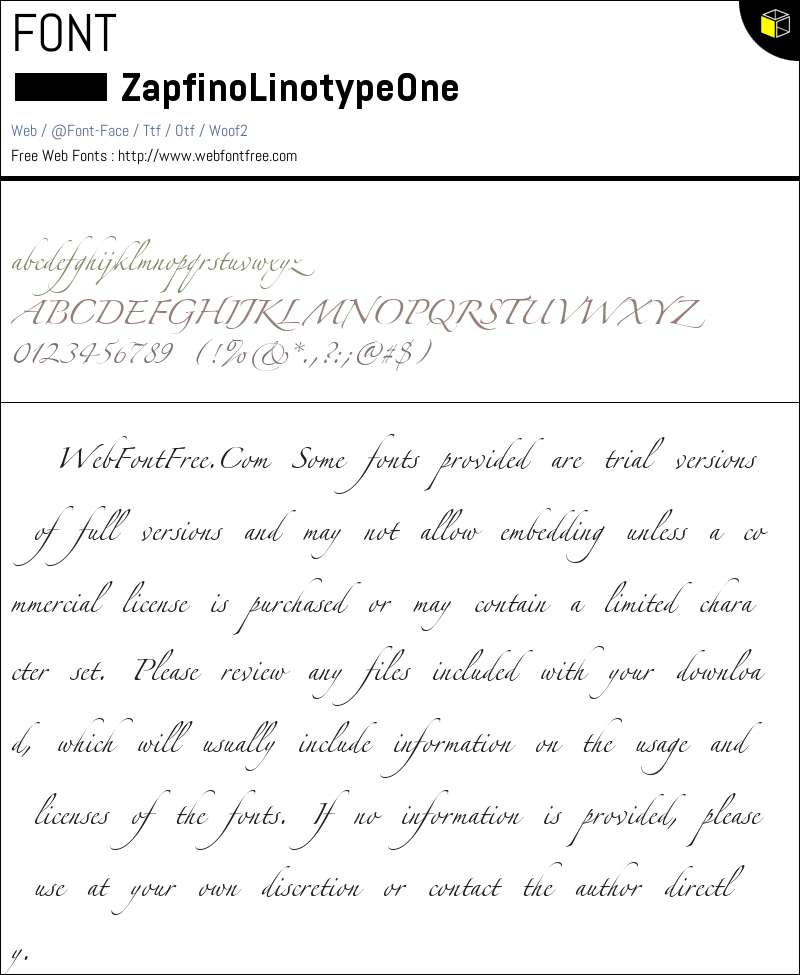 FONT
ZapfinoLinotypeOne
Web / @Font-Face / Ttf / Otf / Woof2
Free Web Fonts : http://www.webfontfree.com
abcdefghijklmnopqrstuvwxyz
ABCDEFGHIJKLMNOPQRSTUVWXYZ
0123456789 (!%&*.,?:;@#$)
WebFontFree.Com Some fonts provided are trial versions
of full versions and may not allow embedding unless a co
mmercial license is purchased or may contain a limited chara
cter set. Please review any files included with your downloa
d, which will usually include information on the usage and
licenses of the fonts. If no information is provided, please
use at your own discretion or contact the author directl
y.